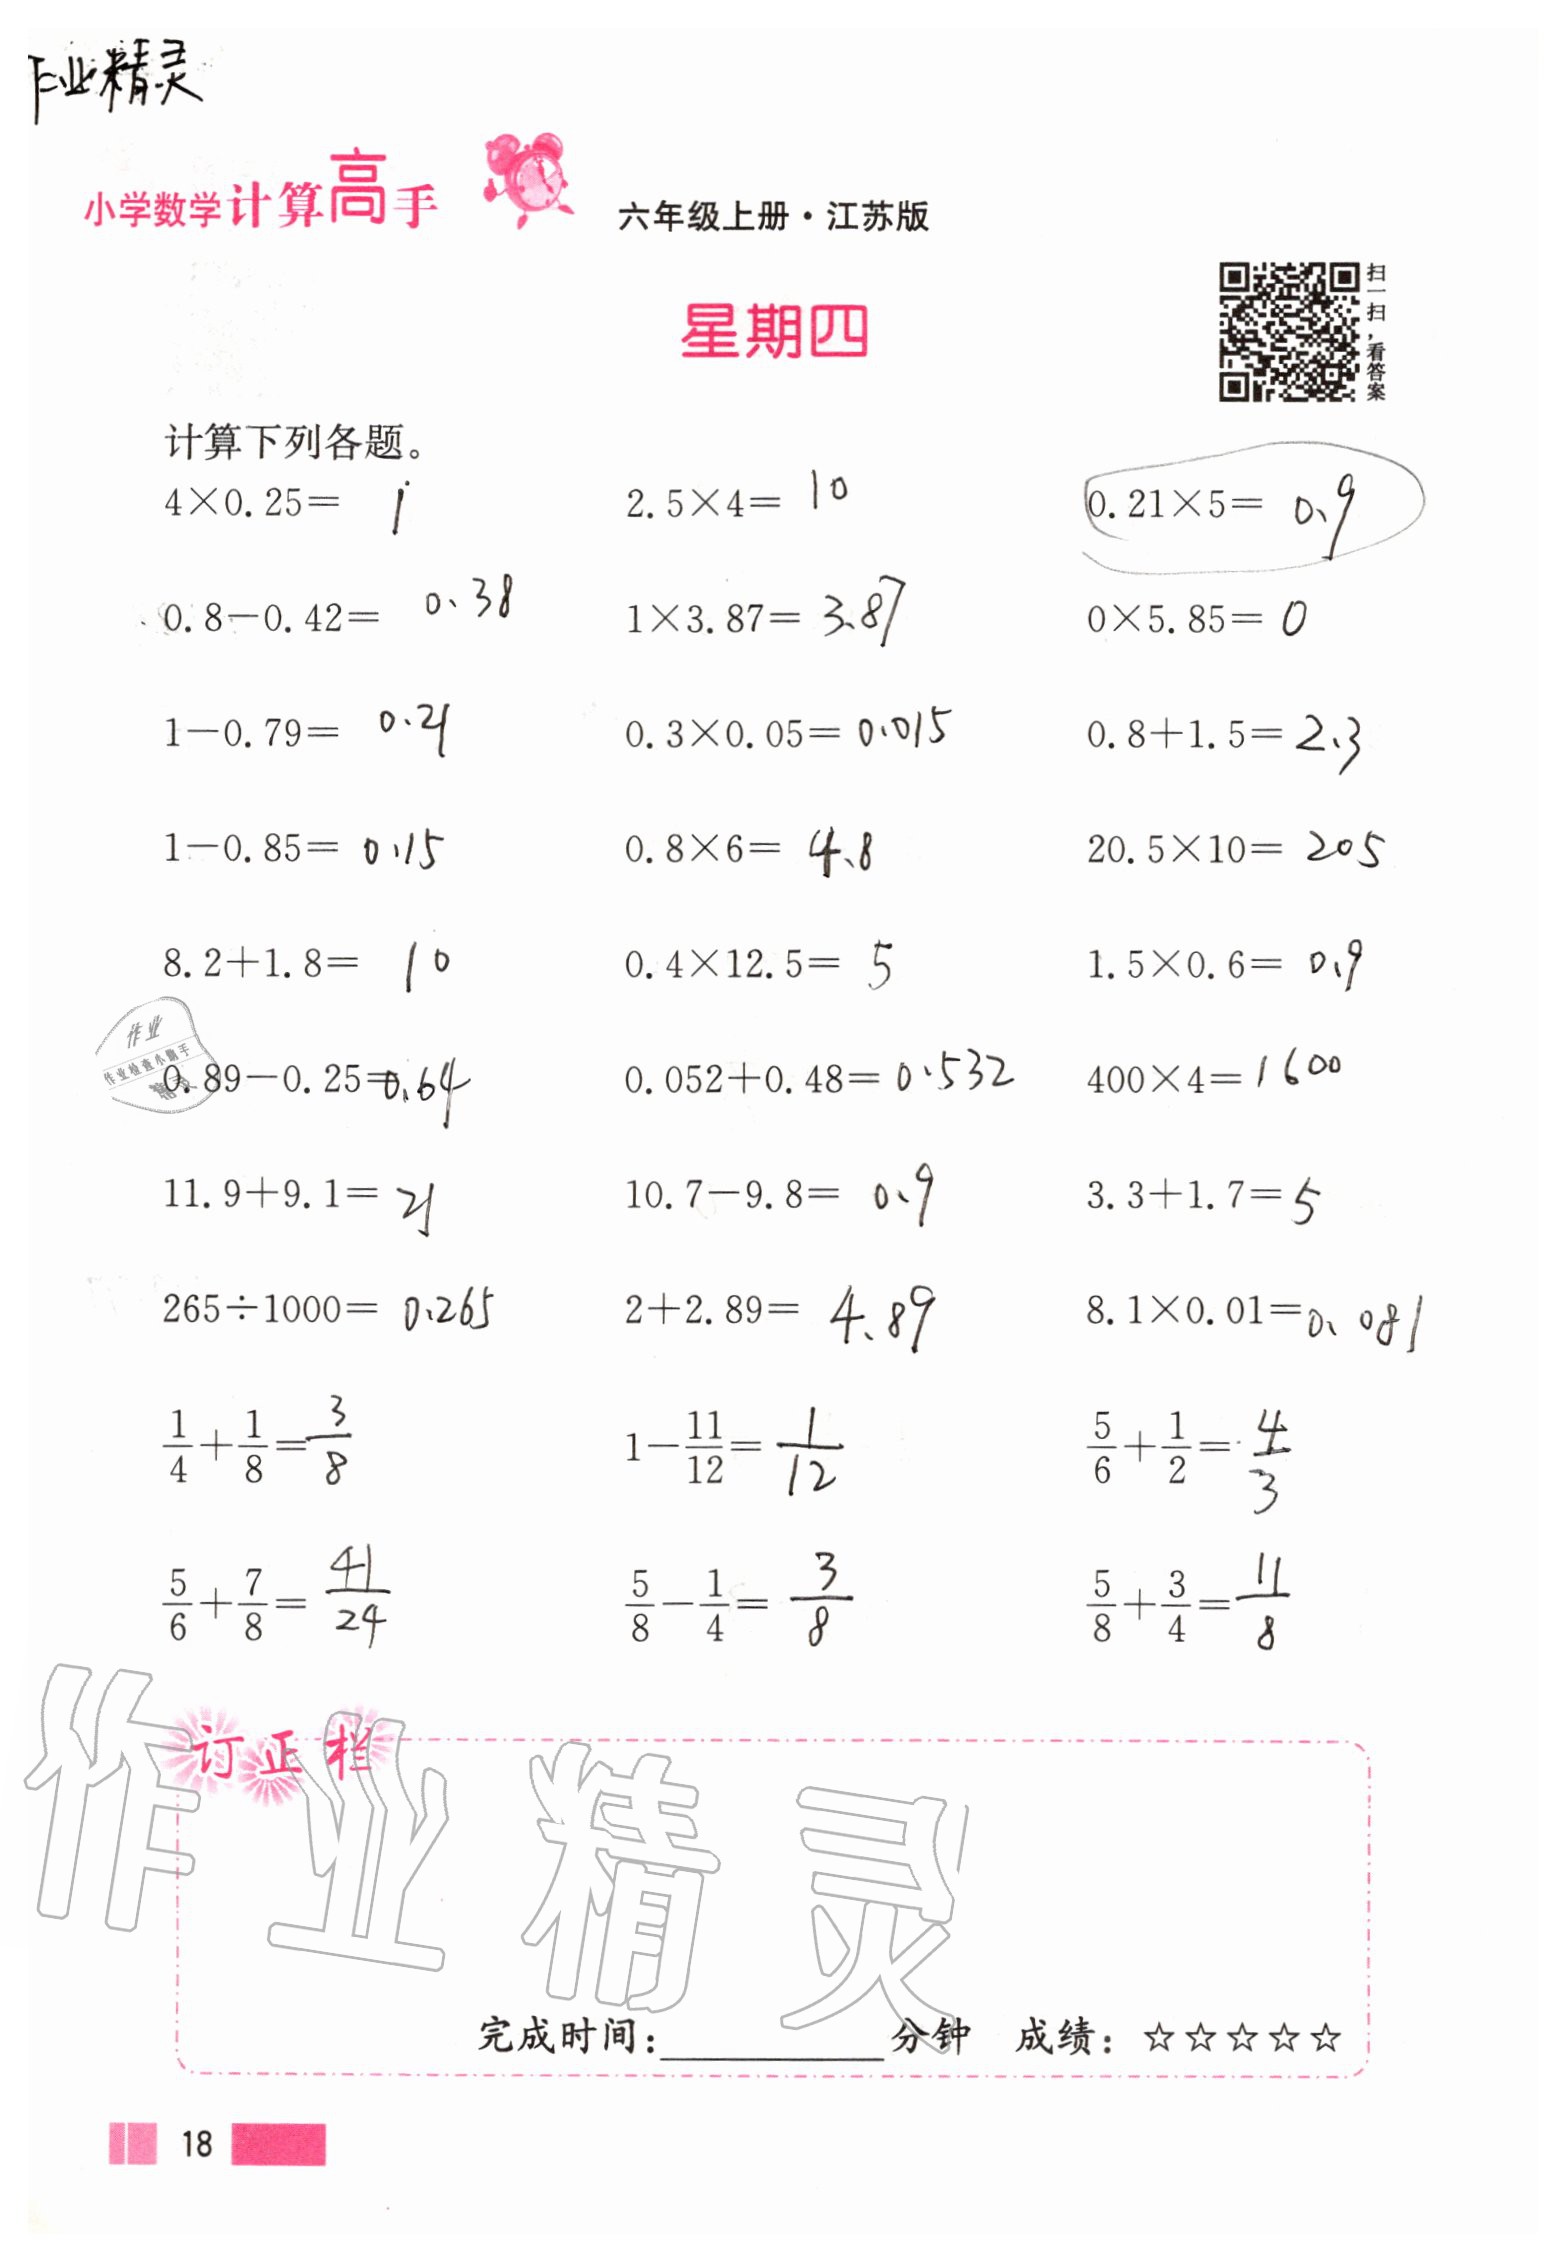 作业精灵
小学数学计算高手 六年级上册·江苏版
扫一扫，看答案
星期四
计算下列各题。
4×0.25= 1 2.5×4= 10 0.21×5= 0.9
0.8−0.42= 0.38 1×3.87= 3.87 0×5.85= 0
1−0.79= 0.21 0.3×0.05= 0.015 0.8+1.5= 2.3
1−0.85= 0.15 0.8×6= 4.8 20.5×10= 205
8.2+1.8= 10 0.4×12.5= 5 1.5×0.6= 0.9
作业
作业检查小助手
精灵
0.89−0.25= 0.64 0.052+0.48= 0.532 400×4= 1600
11.9+9.1= 21 10.7−9.8= 0.9 3.3+1.7= 5
265÷1000= 0.265 2+2.89= 4.89 8.1×0.01= 0.081
1/4+1/8= 3/8 1−11/12= 1/12 5/6+1/2= 4/3
5/6+7/8= 41/24 5/8−1/4= 3/8 5/8+3/4= 11/8
订正栏
作业精灵
完成时间：________分钟 成绩：☆☆☆☆☆
18